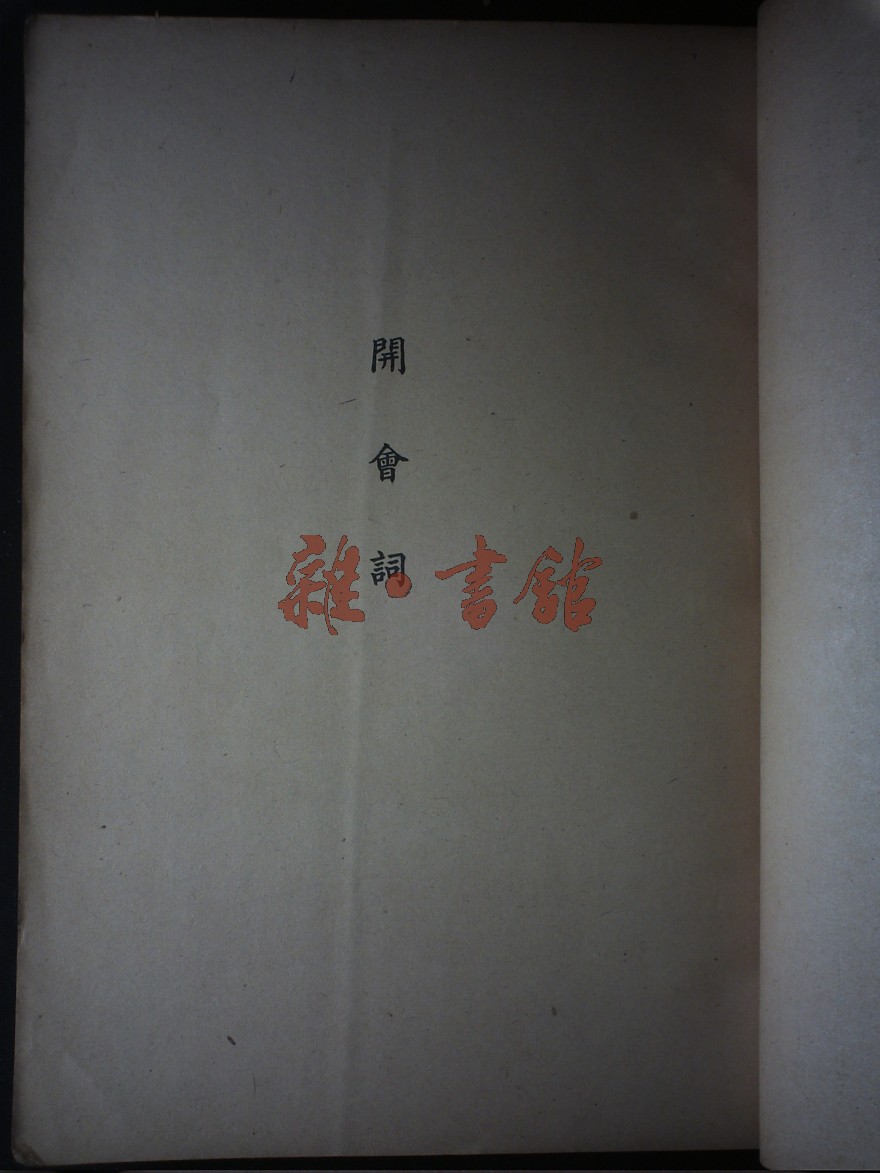 開會詞
雜·書館